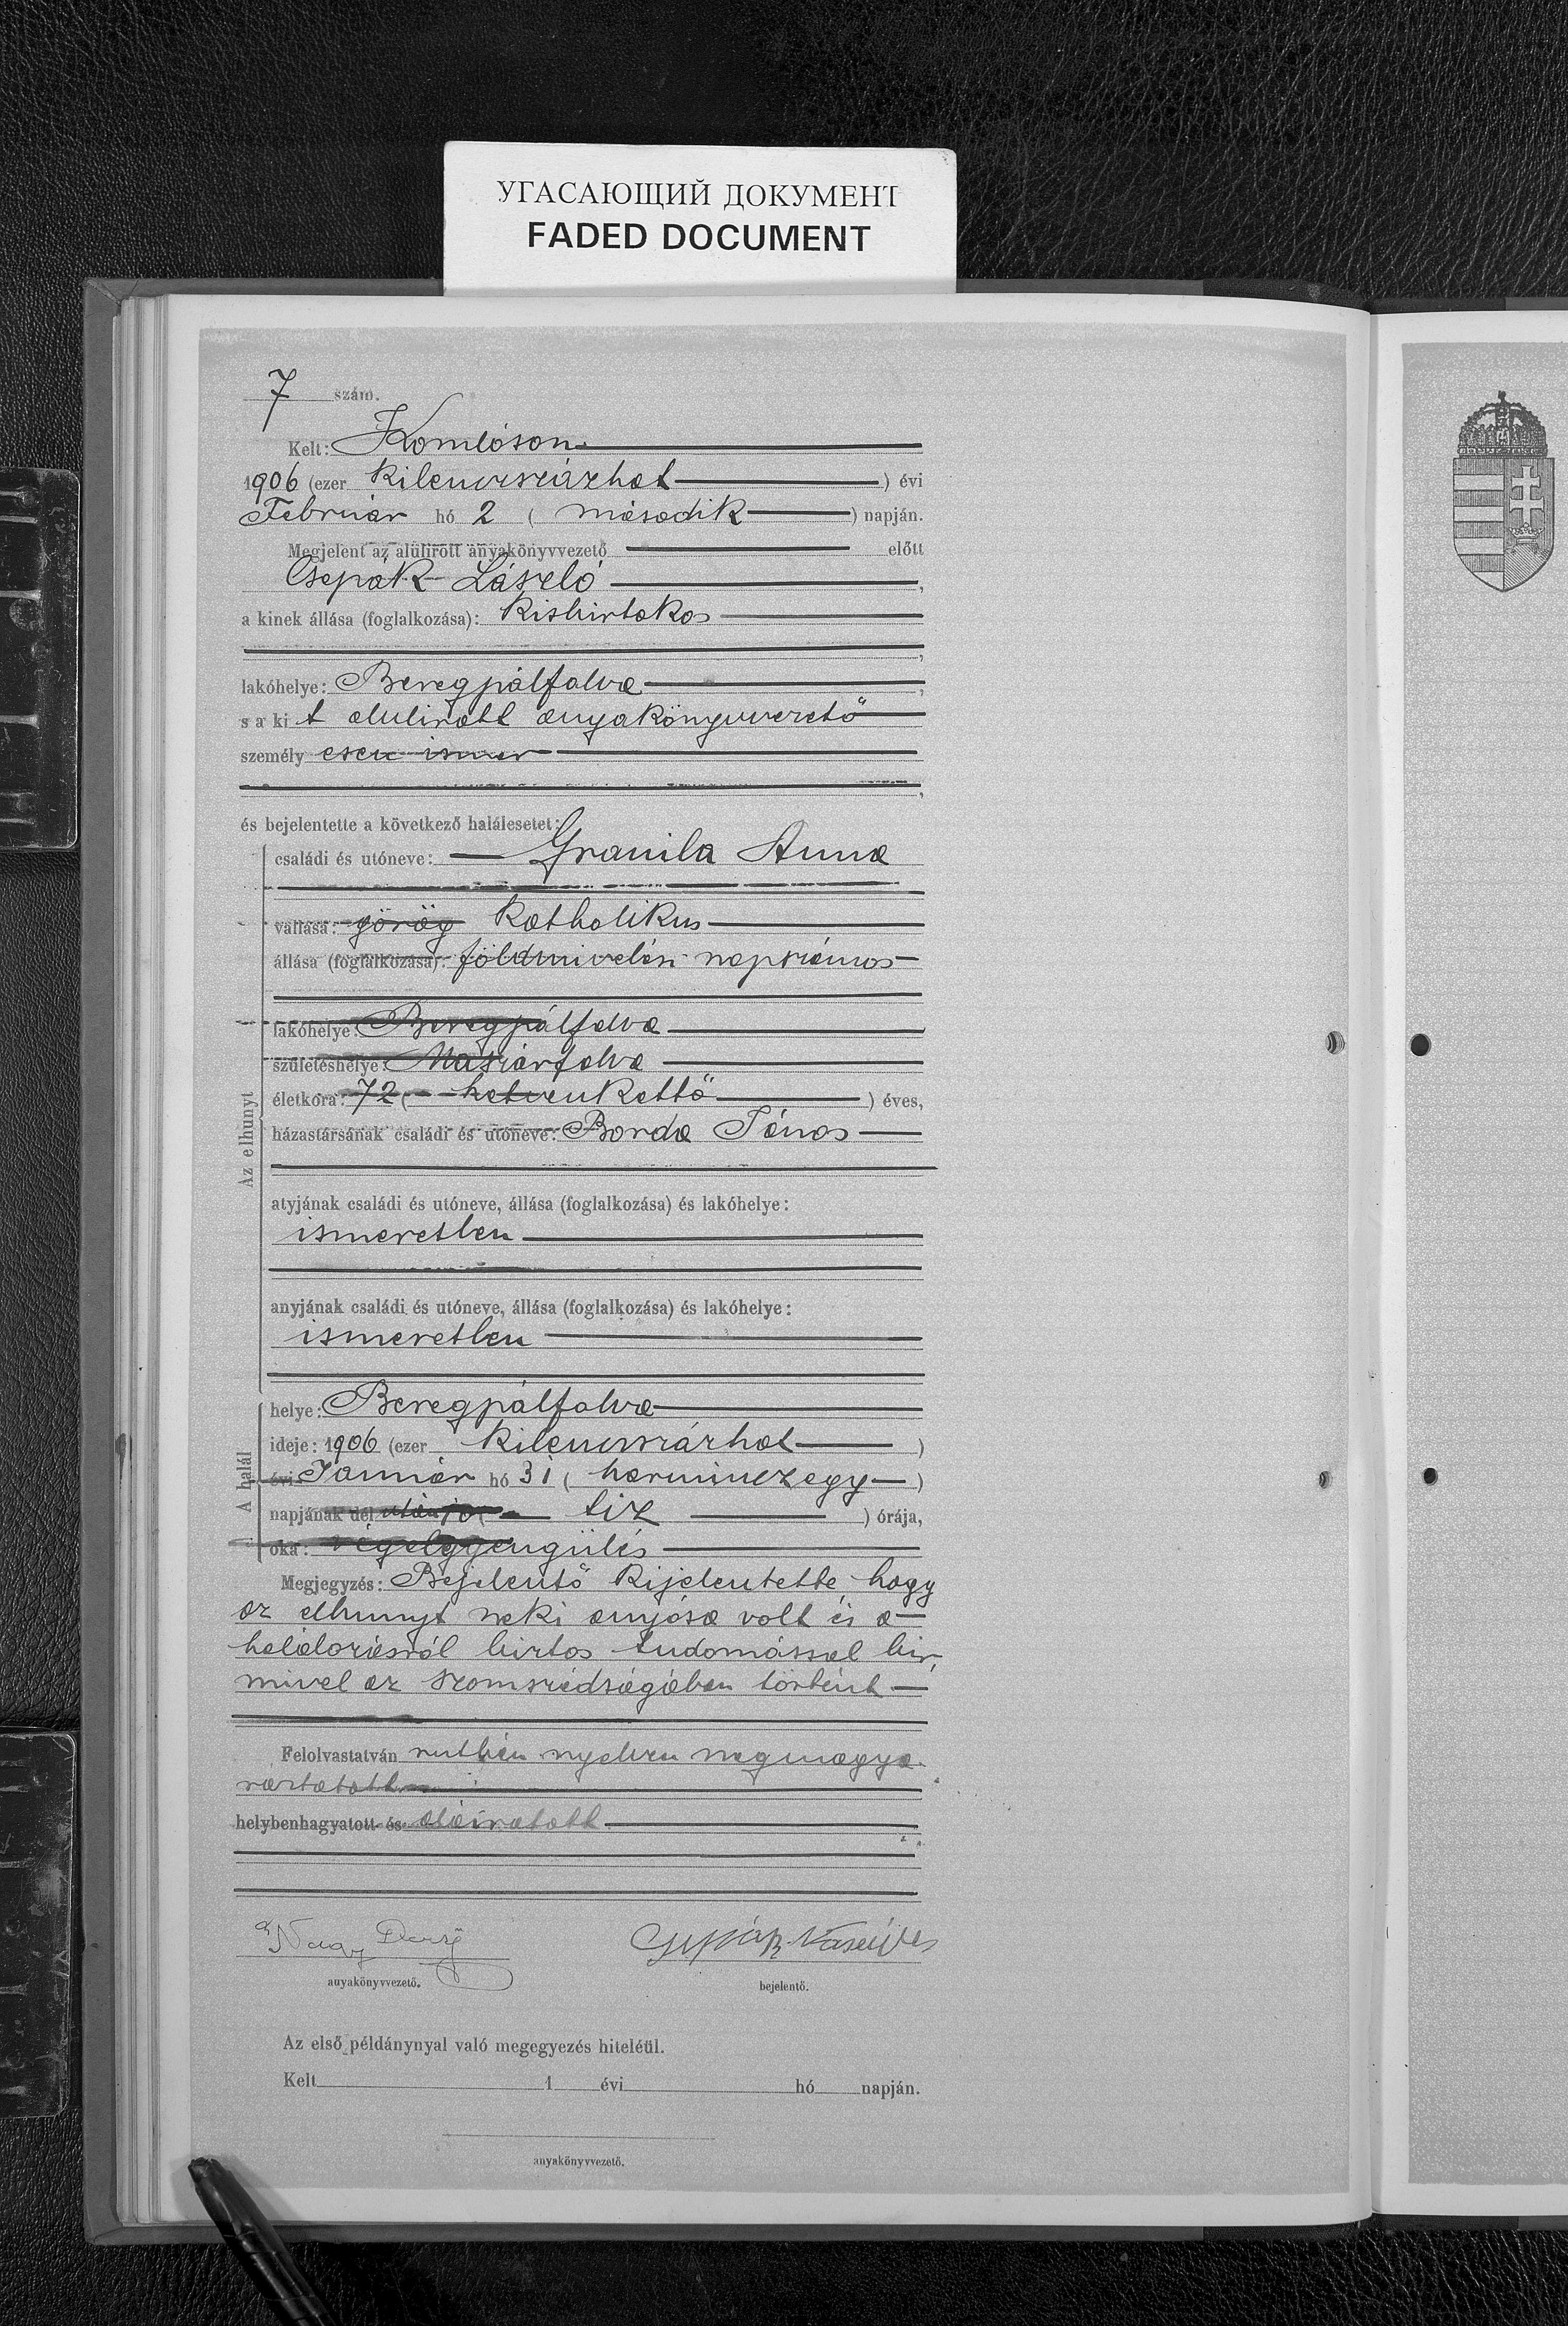 УГАСАЮЩИЙ ДОКУМЕНТ
FADED DOCUMENT
7 szám.
Kelt: Komlóson
1906 (ezer kilenczszázhat ) évi
Február hó 2 ( második ) napján.
Megjelent az alulirott anyakönyvvezető előtt
Csepák László ,
a kinek állása (foglalkozása): kisbirtokos
,
lakóhelye: Beregpálfalva ,
s a ki t alulirott anyakönyvvezető
személy esen ismer
,
és bejelentette a következő halálesetet:
Az elhunyt
családi és utóneve: Granila Anna
vallása: görög katholikus
állása (foglalkozása): földmivelési napszámos
lakóhelye: Beregpálfalva
születéshelye: Maszárfalva
életkora: 72 ( hetvenkettő ) éves,
házastársának családi és utóneve: Borda János
atyjának családi és utóneve, állása (foglalkozása) és lakóhelye:
ismeretlen
anyjának családi és utóneve, állása (foglalkozása) és lakóhelye:
ismeretlen
A halál
helye: Beregpálfalva
ideje: 1906 (ezer kilenczszázhat )
évi Január hó 31 ( harminczegy )
napjának dél után 10 ( tiz ) órája,
oka: végelgyengülés
Megjegyzés: Bejelentő kijelentette, hogy
az elhunyt neki anyósa volt és a
halálozásról birtos tudomással bir,
mivel az szomszédságában történt
Felolvastatván ruthén nyelven megmagya-
ráztatott
helybenhagyatott és aláiratott
Nagy Dezső
anyakönyvvezető.
bejelentő.
Az első példánynyal való megegyezés hiteléül.
Kelt 1 évi hó napján.
anyakönyvvezető.